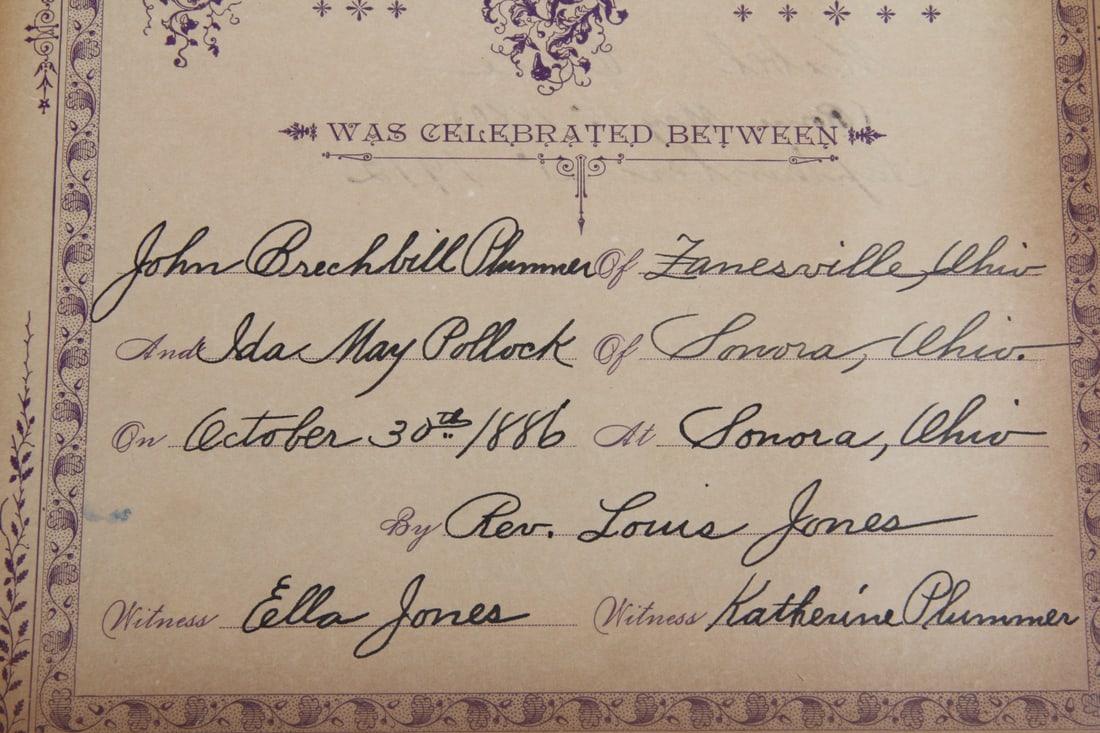 WAS CELEBRATED BETWEEN
John Brechbill Plummer Of Zanesville, Ohio
And Ida May Pollock Of Sonora, Ohio.
On October 30th 1886 At Sonora, Ohio
By Rev. Louis Jones
Witness Ella Jones Witness Katherine Plummer